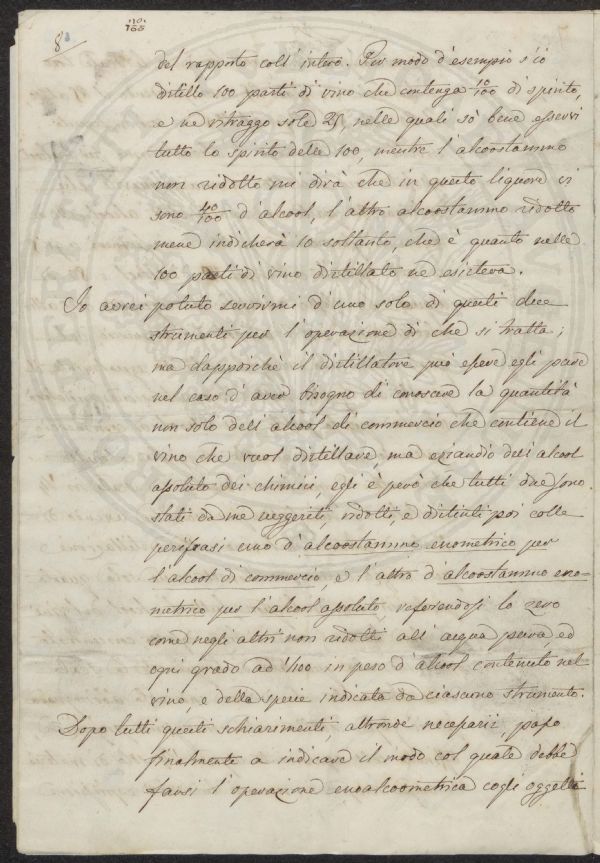 8
110.
166
del rapporto coll' intero. Per modo d'esempio s'io
distillo 100 parti di vino che contenga 10/100 di spirito,
e ne ritraggo sole 25, nelle quali sò bene esservi
tutto lo spirito delle 100, mentre l'alcoostammo
non ridotto mi dirà che in questo liquore vi
sono 40/100 d'alcool, l'altro alcoostammo ridotto
mene indicherà 10 soltanto, che è quanto nelle
100 parti di vino distillato ne esisteva.
Io avrei potuto servirmi d'uno solo di questi due
strumenti per l'operazione di che si tratta;
ma dappoichè il distillatore può essere egli pure
nel caso d'aver bisogno di conoscere la quantità
non solo dell'alcool di commercio che contiene il
vino che vuol distillare, ma eziandio dell'alcool
assoluto dei chimici, egli è però che tutti due sono
stati da me suggeriti, ridotti, e distinti poi colle
perifrasi uno d'alcoostammo enometrico per
l'alcool di commercio, e l'altro d'alcoostammo eno-
metrico per l'alcool assoluto, riferendosi lo zero
come negli altri non ridotti all'acqua pura, ed
ogni grado ad 1/100 in peso d'alcool contenuto nel
vino, e della specie indicata da ciascuno strumento.
Dopo tutti questi schiarimenti, altronde necessarii, passo
finalmente a indicare il modo col quale debbe
farsi l'operazione enoalcoometrica cogli oggetti